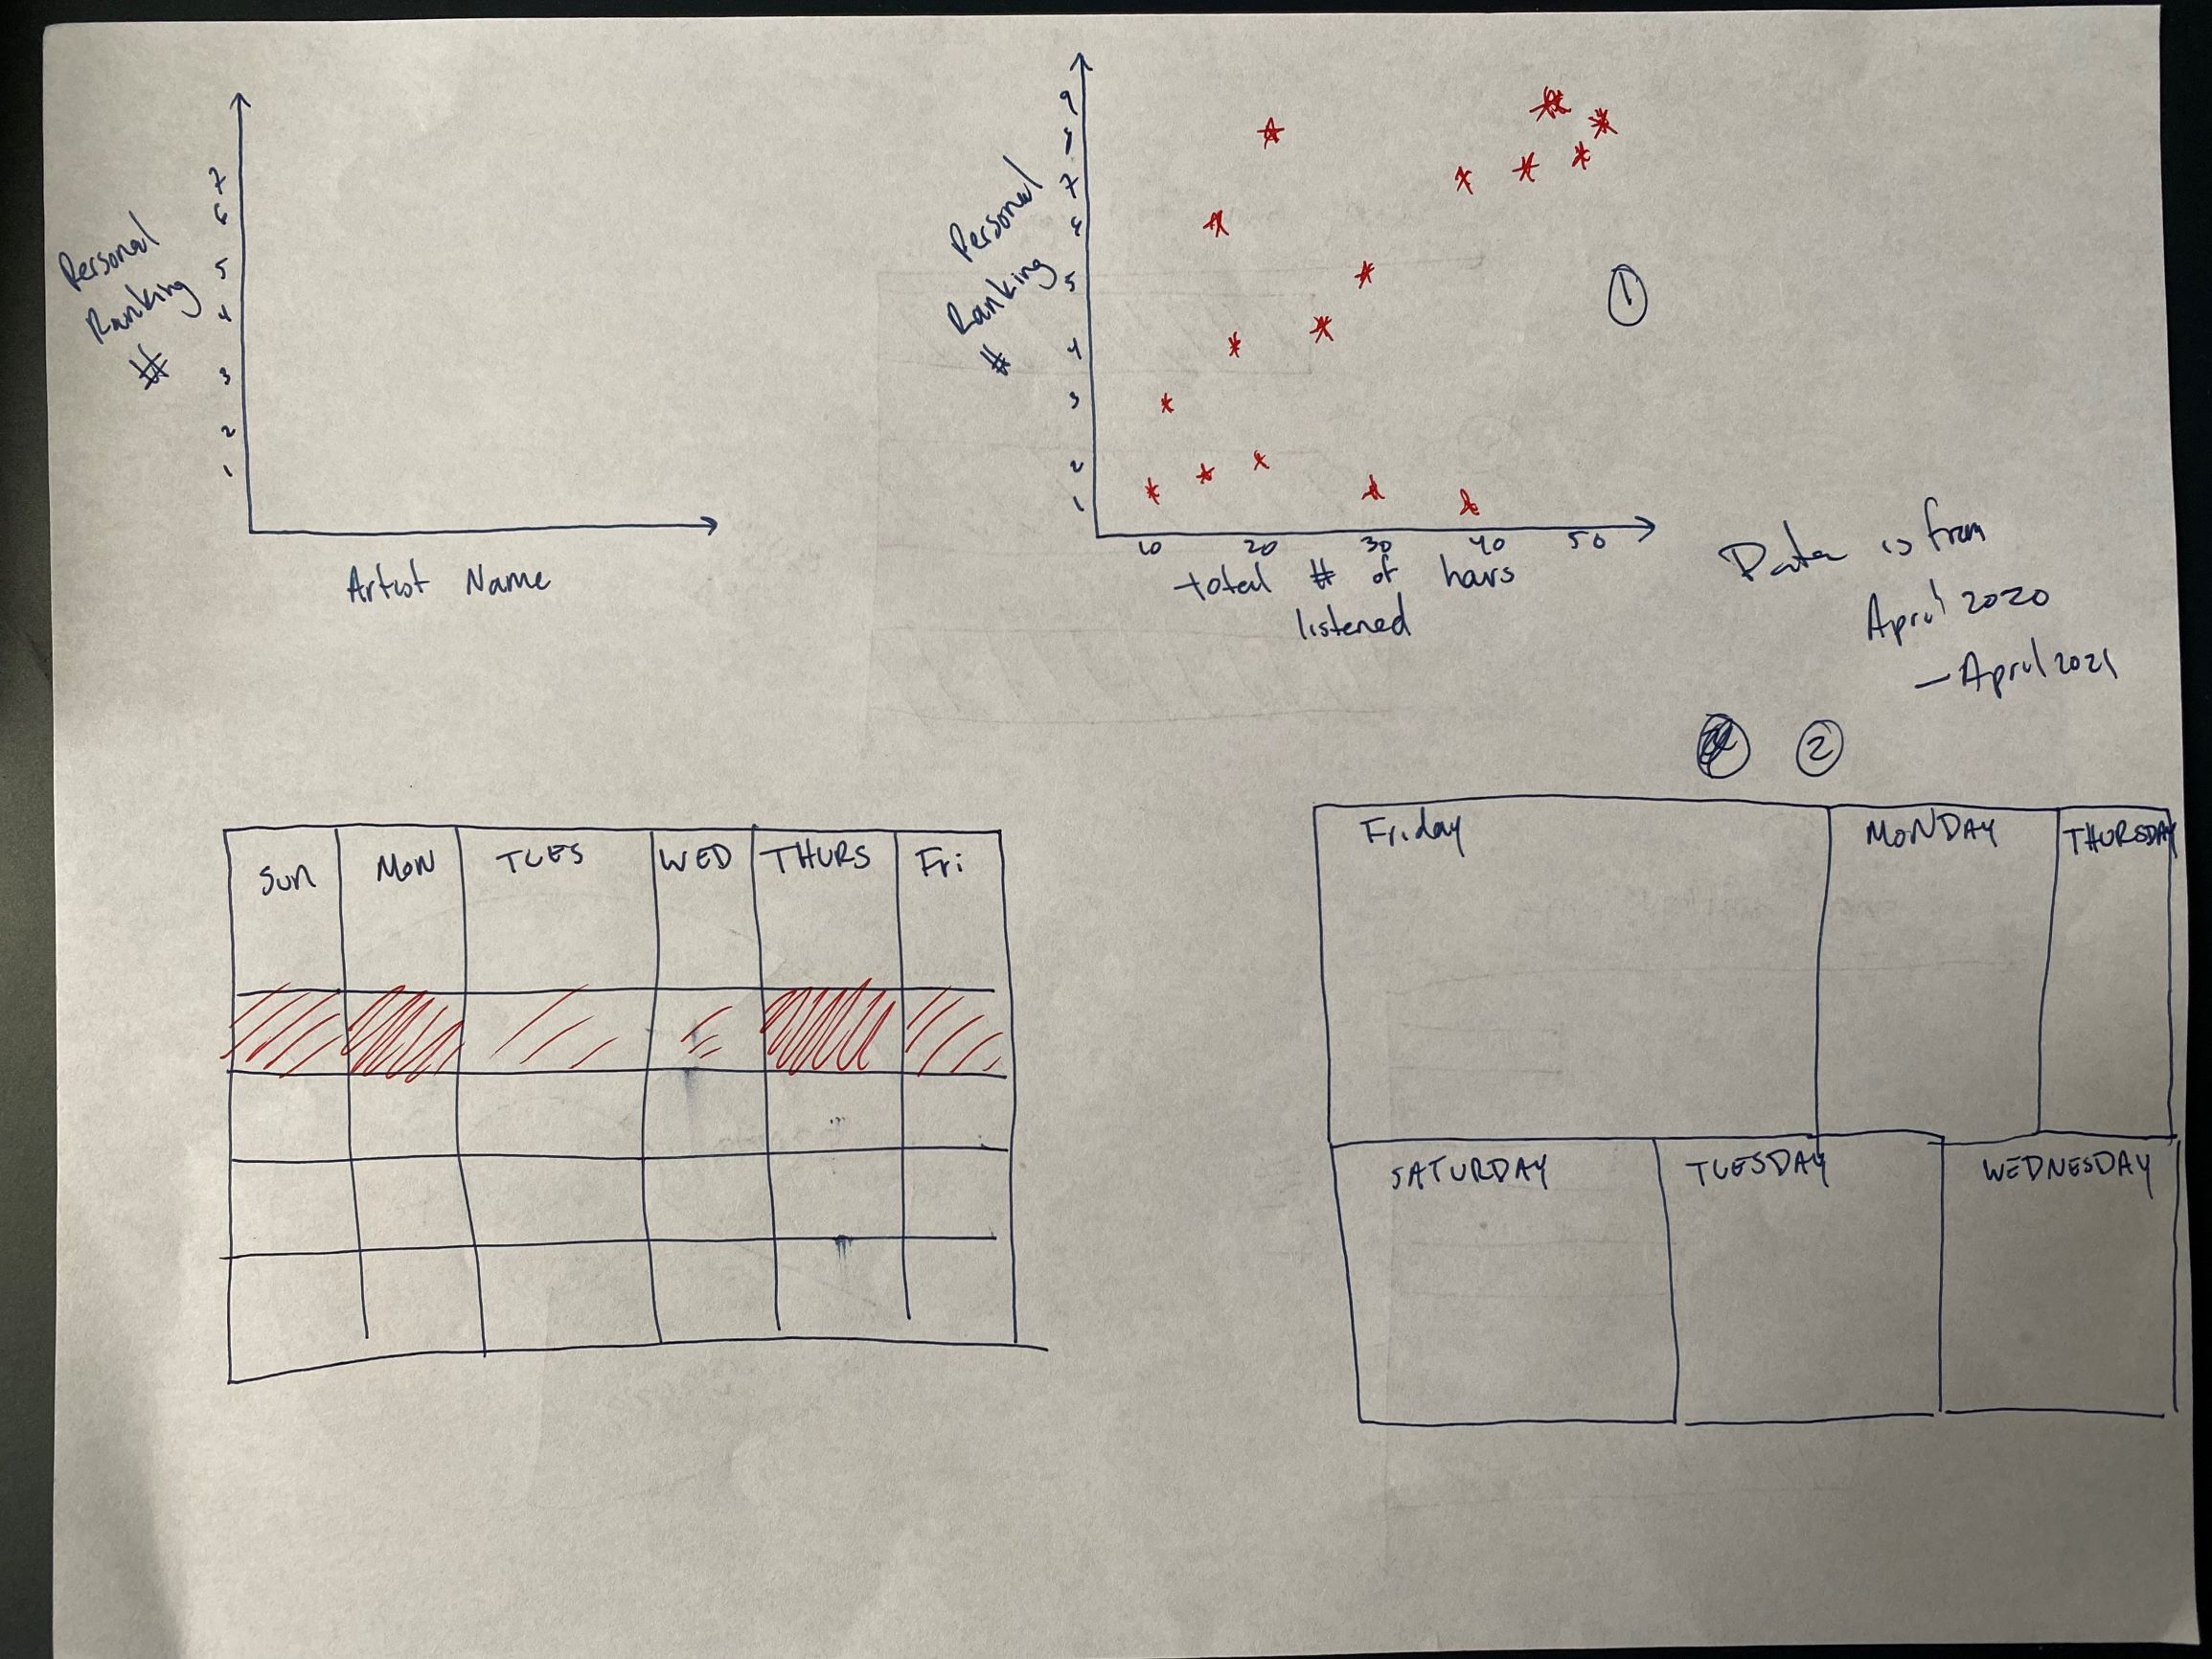 7
6
5
4
3
2
1
Personal
Ranking
#
Artist Name
9
8
7
6
5
4
3
2
1
Personal
Ranking
#
10 20 30 40 50
total # of hours
listened
1
Data is from
April 2020
- April 2021
2
Sun Mon TUES WED THURS Fri
Friday MONDAY THURSDAY
SATURDAY TUESDAY WEDNESDAY